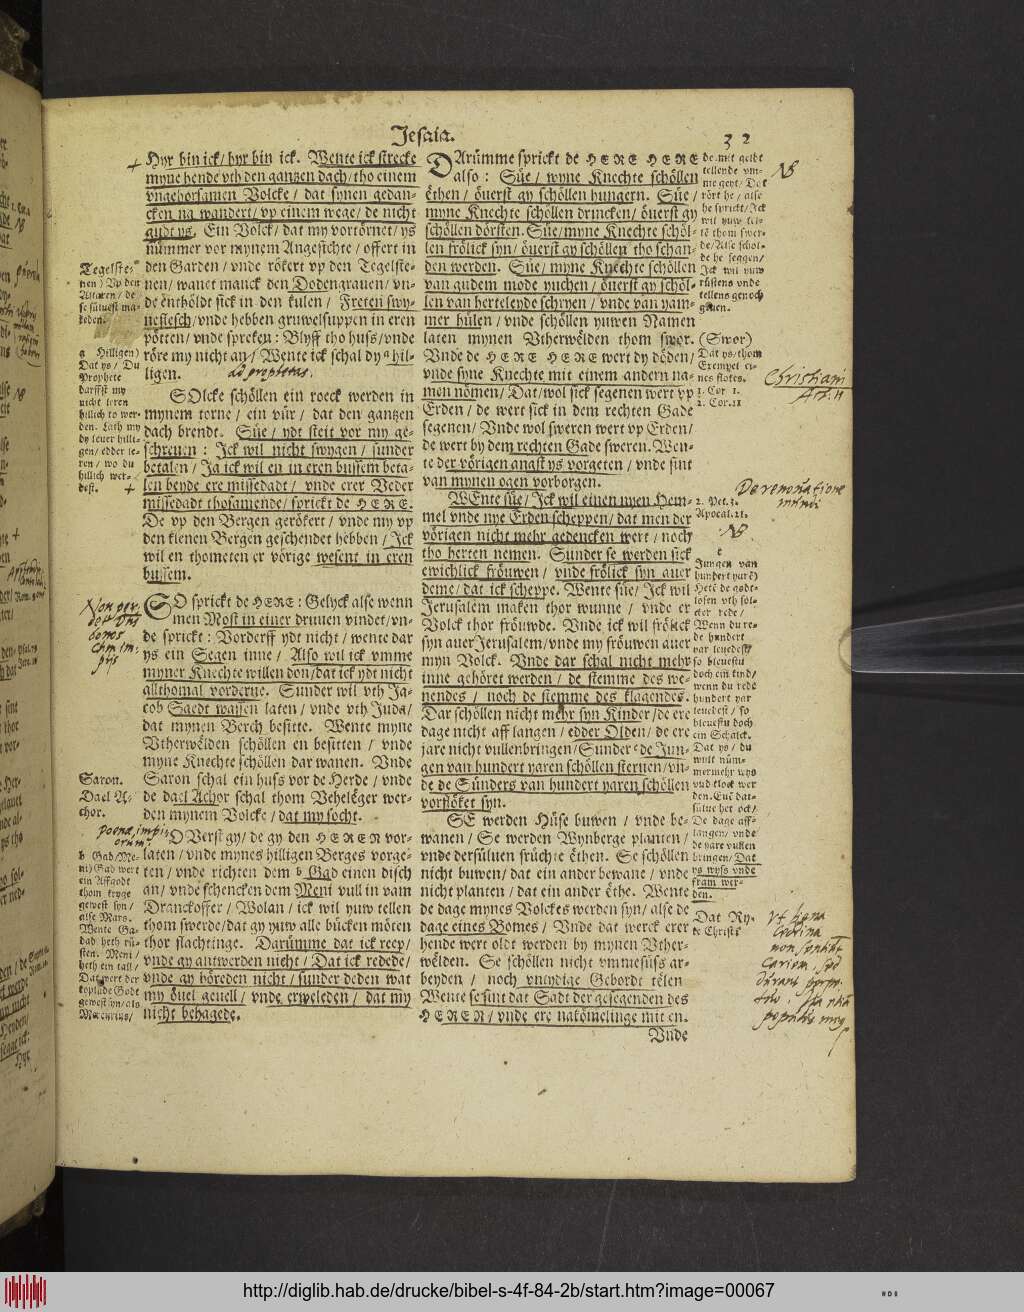 Jesaia.
32
Hyr bin ick/ hyr bin ick. Wente ick strecke
myne hende vth den gantzen dach/ tho einem
vngehorsamen Volcke/ dat synen gedan-
cken na wandert/ vp einem wege/ de nicht
gudt ys. Ein Volck/ dat my vortörnet/ ys
nümmer vor mynem Angesichte/ offert in
den Garden/ vnde rökert vp den Tegelste-
nen/ wanet manck den Dodengrauen/ vn-
de entholdt sick in den kulen/ Freten swy-
neflesch/ vnde hebben gruwelsuppen in eren
pötten/ vnde spreken: Blyff tho huss/ vnde
röre my nicht an/ Wente ick schal dy a hil-
ligen.
SOlcke schöllen ein roeck werden in
mynem torne/ ein vür/ dat den gantzen
dach brendt. Süe/ ydt steit vor my ge-
schreuen: Ick wil nicht swygen/ sunder
betalen/ Ja ick wil en in eren bussem beta-
len beyde ere missedadt/ vnde erer Veder
missedadt thosamende/ sprickt de HERE.
De vp den Bergen gerökert/ vnde my vp
den klenen Bergen geschendet hebben/ Ick
wil en thometen er vörige wesent in eren
bussem.
SO sprickt de HERE: Gelyck alse wenn
men Most in einer druuen vindet/ vn-
de sprickt: Vorderff ydt nicht/ wente dar
ys ein Segen inne/ Also wil ick vmme
myner Knechte willen don/ dat ick ydt nicht
allthomal vorderue. Sunder wil vth Ja-
cob Saedt wassen laten/ vnde vth Juda/
dat mynen Berch besitte. Wente myne
Vtherwelden schöllen en besitten/ vnde
myne Knechte schöllen dar wanen. Vnde
Saron schal ein huss vor de Herde/ vnde
de dael Achor schal thom Vehelёger wer-
den mynem Volcke/ dat my socht.
OVerst gy/ de gy den HEREN vor-
laten/ vnde mynes hilligen Berges vorge-
ten/ vnde richten dem b Gad einen disch
an/ vnde schencken dem Meni vull in vam
Dranckoffer/ Wolan/ ick wil yuw tellen
thom swerde/ dat gy yuw alle bücken möten
thor slachtinge. Darümme dat ick reep/
vnde gy antwerden nicht/ Dat ick redede/
vnde gy höreden nicht/ sunder deden wat
my öuel geuell/ vnde erweleden/ dat my
nicht behagede.
Tegelste-
nen) Vp den
Altaren/ de
se süluest ma-
keden.
a Hilligen)
Dat ys/ Du
Prophete
darffst my
nicht leren
hillich to wer-
den. Lath my
dy leuer hilli-
gen/ edder le-
ren/ wo du
hillich wer-
dest.
Saron.
Dael A-
chor.
b Gad/ Me-
ni) Gad wert
ein Affgodt
thom kryge
gewest syn/
alse Mars.
Wente Ga-
dad heth rü-
sten. Meni/
heth ein tall/
Dat wert der
koplude Godt
gewest syn/ als
Mercurius/
ad prophetas.
DArümme sprickt de HERE HERE
also: Süe/ myne Knechte schöllen
ethen/ öuerst gy schöllen hungern. Süe/
myne Knechte schöllen drincken/ öuerst gy
schöllen dörsten. Süe/ myne Knechte schöl-
len frölick syn/ öuerst gy schöllen tho schan-
den werden. Süe/ myne Knechte schöllen
van gudem mode yuchen/ öuerst gy schöl-
len van herteleyde schryen/ vnde van yam-
mer hülen/ vnde schöllen yuwen Namen
laten mynen Vtherwelden thom swor.
Vnde de HERE HERE wert dy döden/
vnde syne Knechte mit einem andern na-
men nömen/ Dat/ wol sick segenen wert vp
Erden/ de wert sick in dem rechten Gade
segenen/ Vnde wol sweren wert vp Erden/
de wert by dem rechten Gade sweren. Wen-
te der vörigen angst ys vorgeten/ vnde sint
van mynen ogen vorborgen.
WEnte süe/ Ick wil einen nyen Hem-
mel vnde nye Erden scheppen/ dat men der
vörigen nicht mehr gedencken wert/ noch
tho herten nemen. Sunder se werden sick
ewichlick fröuwen/ vnde frölick syn auer
deme/ dat ick scheppe. Wente süe/ Ick wil
Jerusalem maken thor wunne/ vnde er
Volck thor fröuwde. Vnde ick wil frölick
syn auer Jerusalem/ vnde my fröuwen auer
myn Volck. Vnde dar schal nicht mehr
inne gehöret werden/ de stemme des we-
nendes/ noch de stemme des klagendes.
Dar schöllen nicht mehr syn Kinder/ de ere
dage nicht aff langen/ edder Olden/ de ere
jare nicht vullenbringen/ Sunder c de Jun-
gen van hundert yaren schöllen steruen/ vn-
de de Sünders van hundert yaren schöllen
vorflöket syn.
SE werden Hüse buwen/ vnde be-
wanen/ Se werden Wynberge planten/
vnde dersüluen früchte ethen. Se schöllen
nicht buwen/ dat ein ander bewane/ vnde
nicht planten/ dat ein ander ethe. Wente
de dage mynes Volckes werden syn/ alse de
dage eines Bomes/ Vnde dat werck erer
hende wert oldt werden by mynen Vther-
welden. Se schöllen nicht vmmesüss ar-
beyden/ noch vntydige Gebordt telen
Wente se sint dat Sadt der gesegenden des
HEREN/ vnde ere nakömelinge mit en.
Vnde
de mit geldt
tellende vm-
me geyt/ Dat
rört he/ alse
he sprickt/ Ick
wil yuw tel-
len thom swer-
de/ Alse schol-
de he seggen/
Ick wil yuw
rüstens vnde
tellens genoch
geuen.
(Swor)
Dat ys/ thom
Exempel ei-
nes flokes.
1. Cor 1.
2. Cor. 11
2. Pet. 3.
Apocal. 21.
c
Jungen van
hundert yare)
Hete de godt-
losen vth sol-
cker rede/
Wenn du re-
de hundert
yar leuedest/
so bleuestu
doch ein kind/
wenn du rede
hundert yar
leuedest/ so
bleuestu doch
ein Schalck.
Dat ys/ du
wult nüm-
mermehr wys
vnd klock wer-
den. Euē dat-
sülue het ock/
De dage aff-
langen/ vnde
de yare vullen
bringen/ Dat
ys wyss vnde
fram wer-
den.
Dat Ry-
ke Christi
NB
Christiani
De renovatione
mundi
NB.
http://diglib.hab.de/drucke/bibel-s-4f-84-2b/start.htm?image=00067